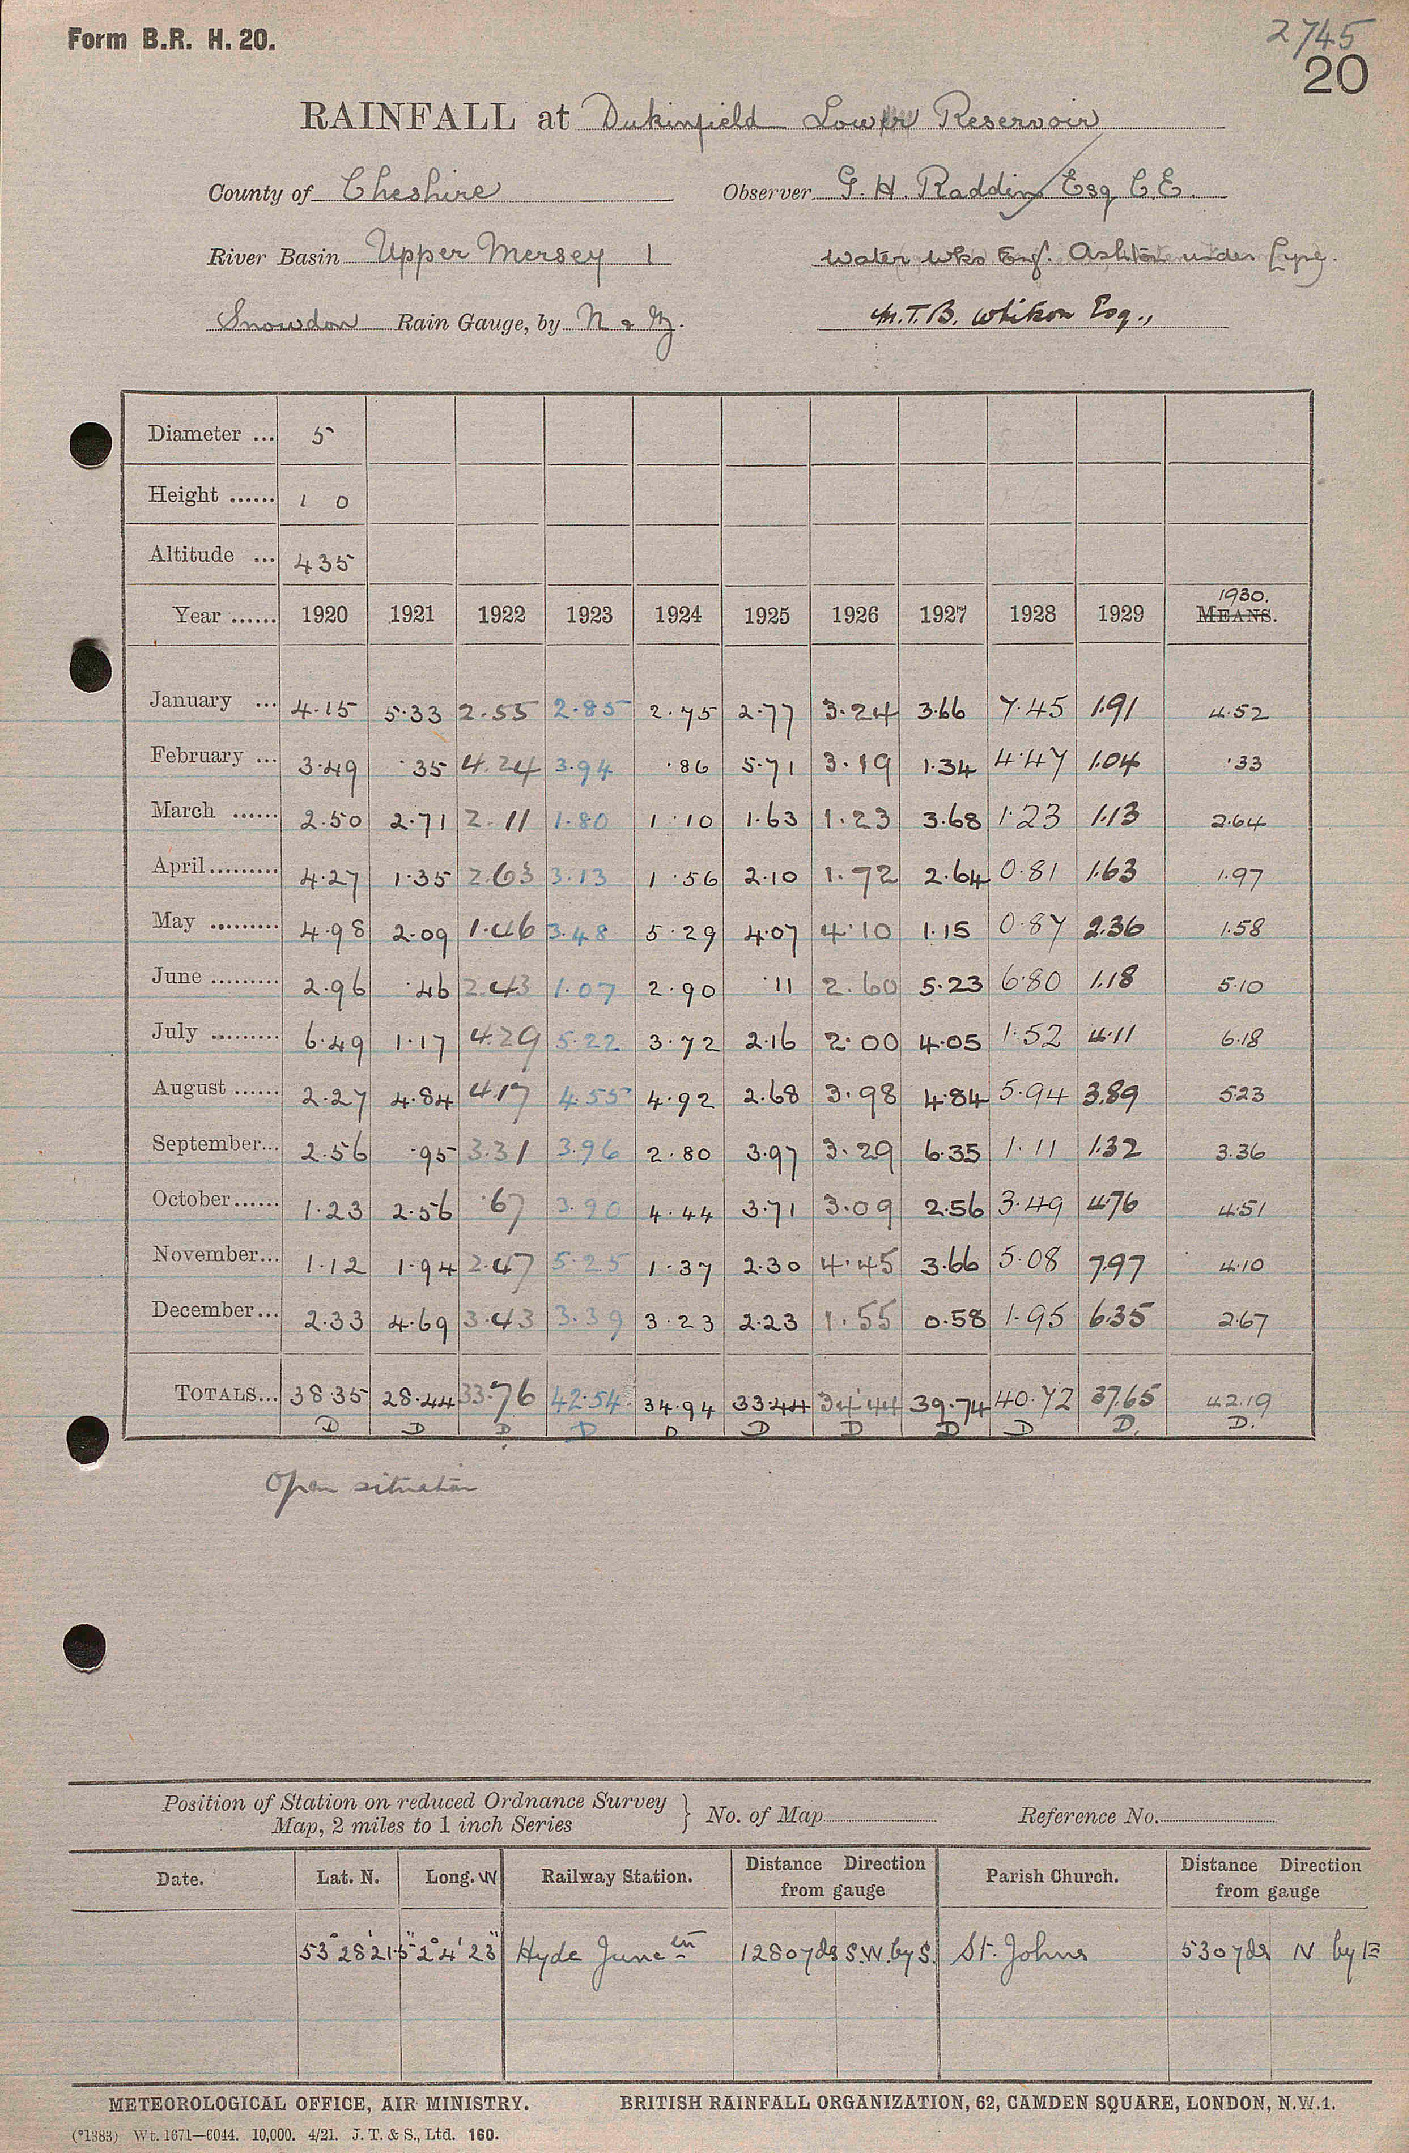 Form B.R. H. 20.
2745
20
RAINFALL at Dukinfield Lower Reservoir
County of Cheshire Observer G. H. Raddin Esq C.E.
River Basin Upper Mersey 1 Water Wks Engr. Ashton under Lyne.
Snowdon Rain Gauge, by N & Z. M.T.B. Whitson Esq.,
Diameter ... 5
Height ...... 1 0
Altitude ... 435
Year ...... 1920 1921 1922 1923 1924 1925 1926 1927 1928 1929 1930. MEANS.
January ... 4.15 5.33 2.55 2.85 2.75 2.77 3.24 3.66 7.45 1.91 4.52
February ... 3.49 .35 4.24 3.94 .86 5.71 3.19 1.34 4.47 1.04 .33
March ...... 2.50 2.71 2.11 1.80 1.10 1.63 1.23 3.68 1.23 1.13 2.64
April ......... 4.27 1.35 2.63 3.13 1.56 2.10 1.72 2.64 0.81 1.63 1.97
May ......... 4.98 2.09 1.46 3.48 5.29 4.07 4.10 1.15 0.87 2.36 1.58
June ......... 2.96 .46 2.43 1.07 2.90 .11 2.60 5.23 6.80 1.18 5.10
July ......... 6.49 1.17 4.29 5.22 3.72 2.16 2.00 4.05 1.52 4.11 6.18
August ...... 2.27 4.84 4.17 4.55 4.92 2.68 3.98 4.84 5.94 3.89 5.23
September... 2.56 .95 3.31 3.96 2.80 3.97 3.29 6.35 1.11 1.32 3.36
October ...... 1.23 2.56 .67 3.90 4.44 3.71 3.09 2.56 3.49 4.76 4.51
November... 1.12 1.94 2.47 5.25 1.37 2.30 4.45 3.66 5.08 7.97 4.10
December... 2.33 4.69 3.43 3.39 3.23 2.23 1.55 0.58 1.95 6.35 2.67
TOTALS... 38.35 28.44 33.76 42.54 34.94 33.44 34.44 39.74 40.72 37.65 42.19
D D D D D D D D D D. D.
Open situation
Position of Station on reduced Ordnance Survey
Map, 2 miles to 1 inch Series } No. of Map Reference No.
Date. Lat. N. Long. W Railway Station. Distance Direction from gauge Parish Church. Distance Direction from gauge
53° 28' 21.5" 2° 4' 23" Hyde Junc en 1280 yds S.W. by S. St. Johns 530 yds N by E
METEOROLOGICAL OFFICE, AIR MINISTRY. BRITISH RAINFALL ORGANIZATION, 62, CAMDEN SQUARE, LONDON, N.W.1.
(*1383) Wt. 1671—6044. 10,000. 4/21. J. T. & S., Ltd. 160.